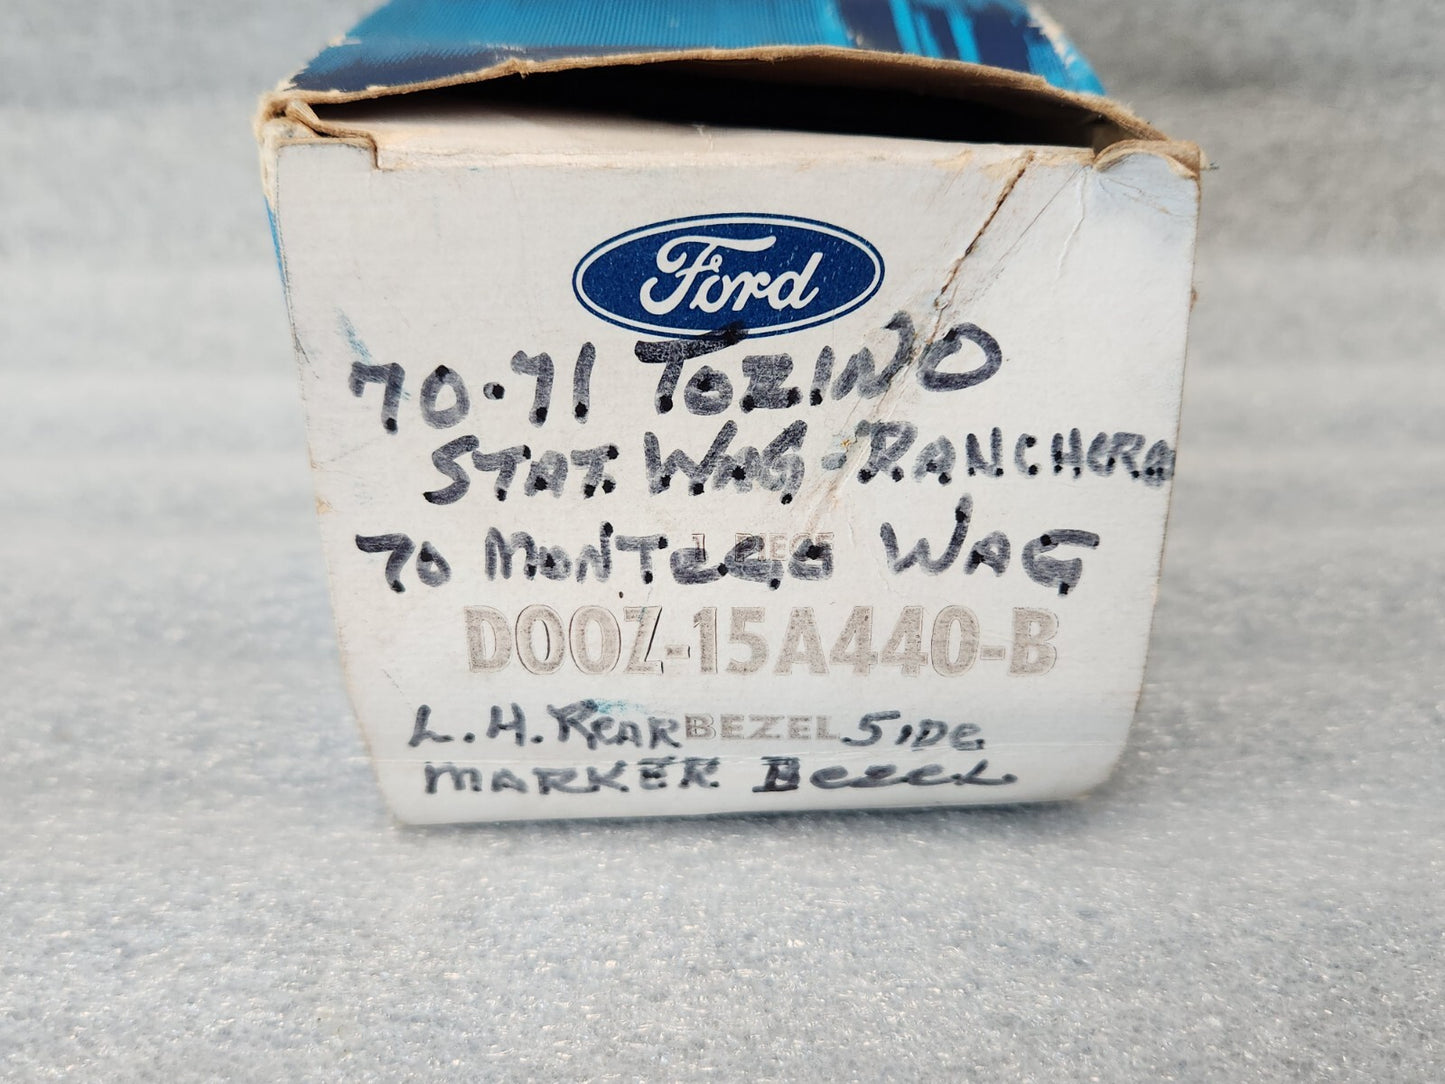 Ford
70-71 TORINO
STAT. WAG-RANCHERO
1 PIECE
70 MONTEGO WAG
DOOZ-15A440-B
L.H. REAR BEZEL SIDE
MARKER BEZEL